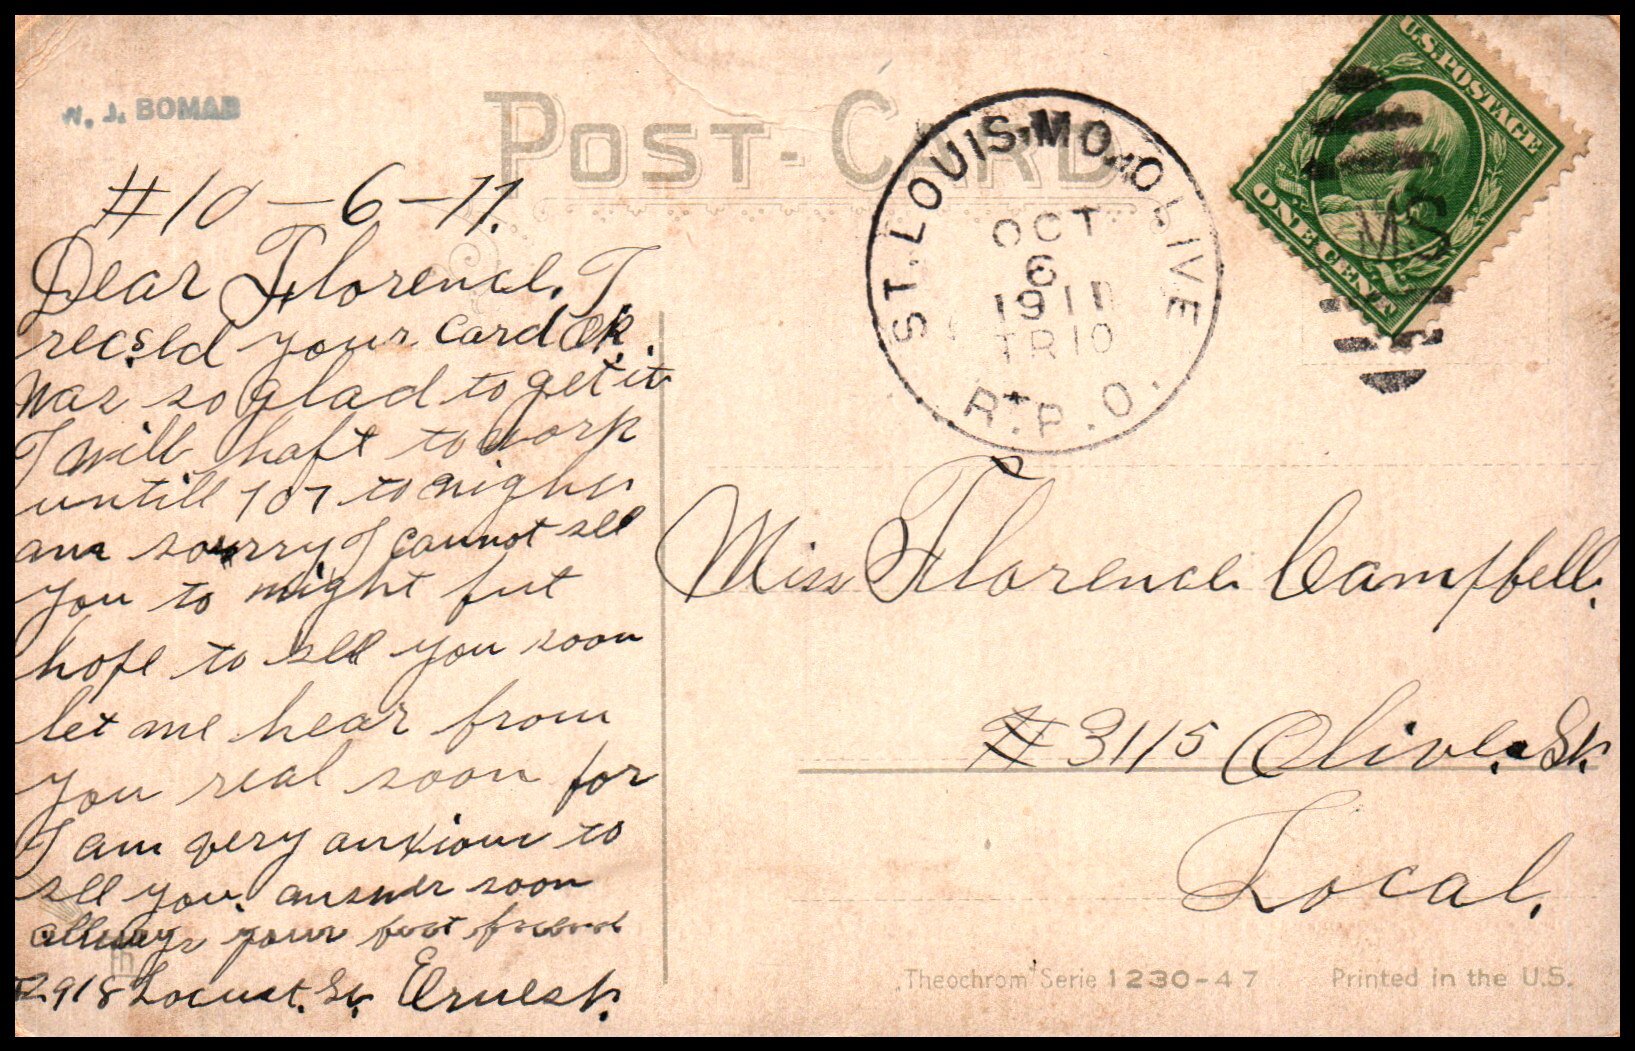 W. J. BOMAR
POST-CARD
U.S. POSTAGE
ONE CENT
M.S
ST. LOUIS, MO. OLIVE
OCT
6
1911
TR 10
R.P.O.
#10-6-11.
Dear Florence. I
recsld your card OK.
was so glad to get it
I will haft to work
untill 10 to night
am sorry I cannot see
you to night but
hope to see you soon
let me hear from
you real soon for
I am very anxious to
see you. answer soon
allways your best friend
2918 Locust. St. Ernest.
Miss Florence Campbell.
#3115 Olive. St.
Local.
Theochrom Serie 1230-47
Printed in the U.S.